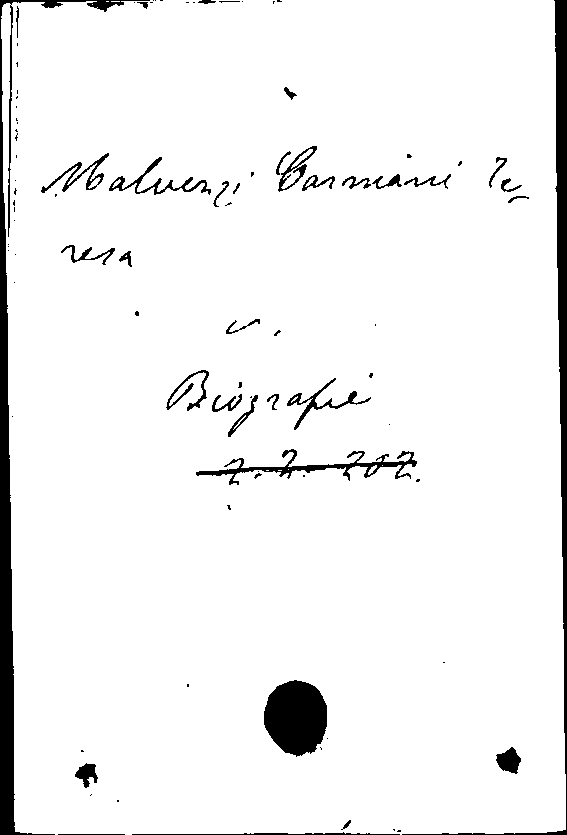 Malvenzi Carniani Te-
resa
v.
Biografie
Z. Z. 202.